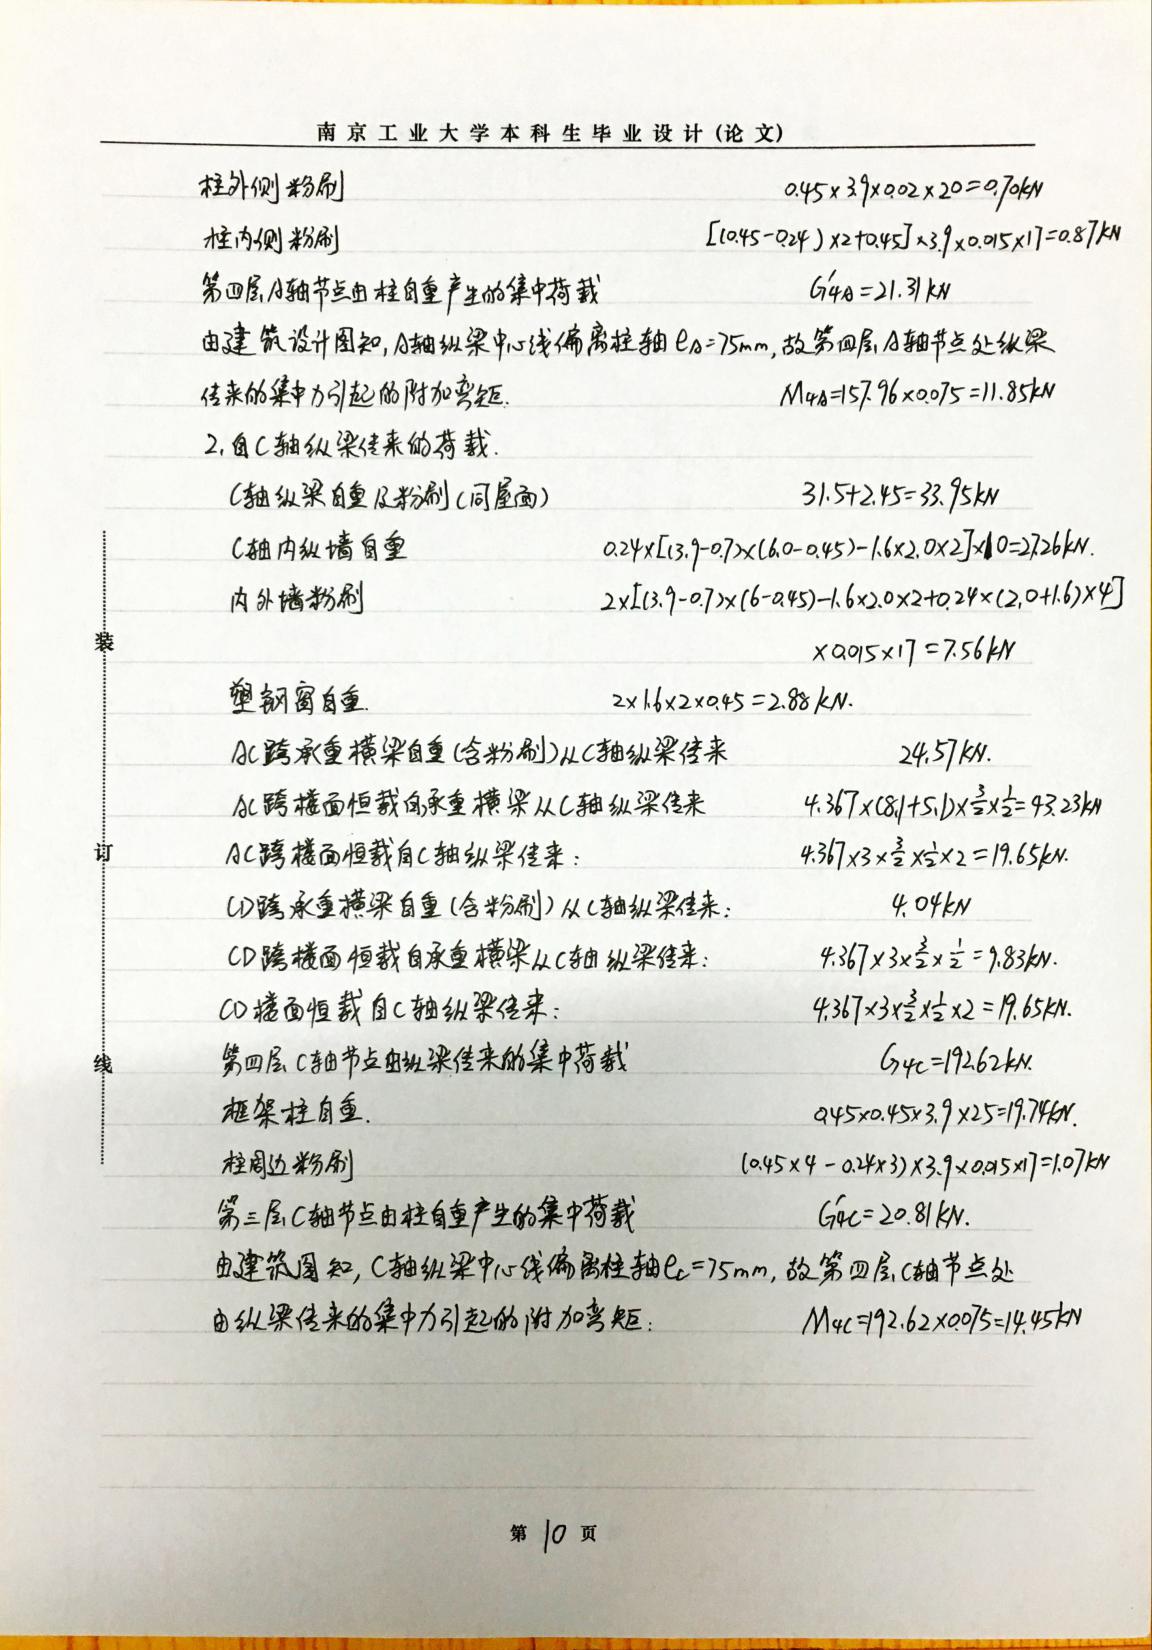 南京工业大学本科生毕业设计(论文)
柱外侧粉刷 0.45×3.9×0.02×20=0.70kN
柱内侧粉刷 [(0.45-0.24)×2+0.45]×3.9×0.015×17=0.87kN
第四层A轴节点由柱自重产生的集中荷载 G'4A=21.31kN
由建筑设计图知,A轴纵梁中心线偏离柱轴eA=75mm,故第四层A轴节点处纵梁
传来的集中力引起的附加弯矩. M4A=157.96×0.075=11.85kN
2.自C轴纵梁传来的荷载.
C轴纵梁自重及粉刷(同屋面) 31.5+2.45=33.95kN
C轴内纵墙自重 0.24×[(3.9-0.7)×(6.0-0.45)-1.6×2.0×2]×10=27.26kN.
内外墙粉刷 2×[(3.9-0.7)×(6-0.45)-1.6×2.0×2+0.24×(2.0+1.6)×4]
×0.015×17=7.56kN
塑钢窗自重. 2×1.6×2×0.45=2.88kN.
AC跨承重横梁自重(含粉刷)从C轴纵梁传来 24.57kN.
AC跨楼面恒载自承重横梁从C轴纵梁传来 4.367×(8.1+5.1)×3/2×1/2=43.23kN
AC跨楼面恒载自C轴纵梁传来: 4.367×3×3/2×1/2×2=19.65kN.
CD跨承重横梁自重(含粉刷)从C轴纵梁传来: 4.04kN
CD跨楼面恒载自承重横梁从C轴纵梁传来: 4.367×3×3/2×1/2=9.83kN.
CD楼面恒载自C轴纵梁传来: 4.367×3×3/2×1/2×2=19.65kN.
第四层C轴节点由纵梁传来的集中荷载 G4C=192.62kN.
框架柱自重. 0.45×0.45×3.9×25=19.74kN.
柱周边粉刷 (0.45×4-0.24×3)×3.9×0.015×17=1.07kN
第三层C轴节点由柱自重产生的集中荷载 G'4C=20.81kN.
由建筑图知,C轴纵梁中心线偏离柱轴eC=75mm,故第四层C轴节点处
由纵梁传来的集中力引起的附加弯矩: M4C=192.62×0.075=14.45kN
装
订
线
第10页